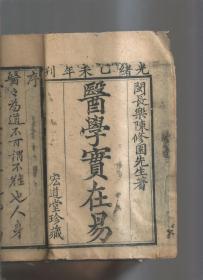 光緒乙未年刊
閩長樂陳修園先生著
醫學實在易
宏道堂珍藏
序
醫之為道不可謂不難也人身